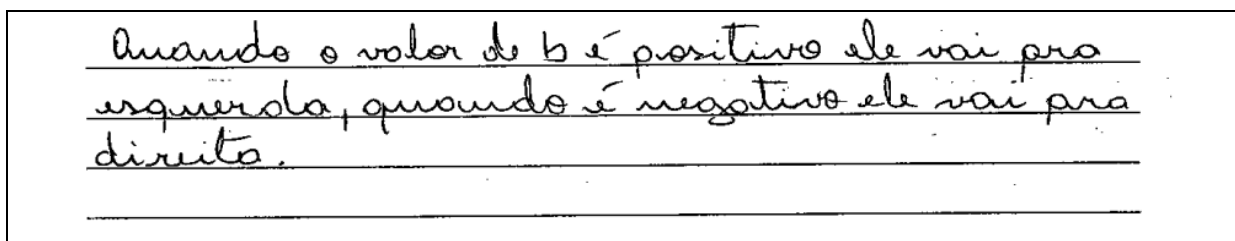 Quando o valor de b é positivo ele vai pra
esquerda, quando é negativo ele vai pra
direita.